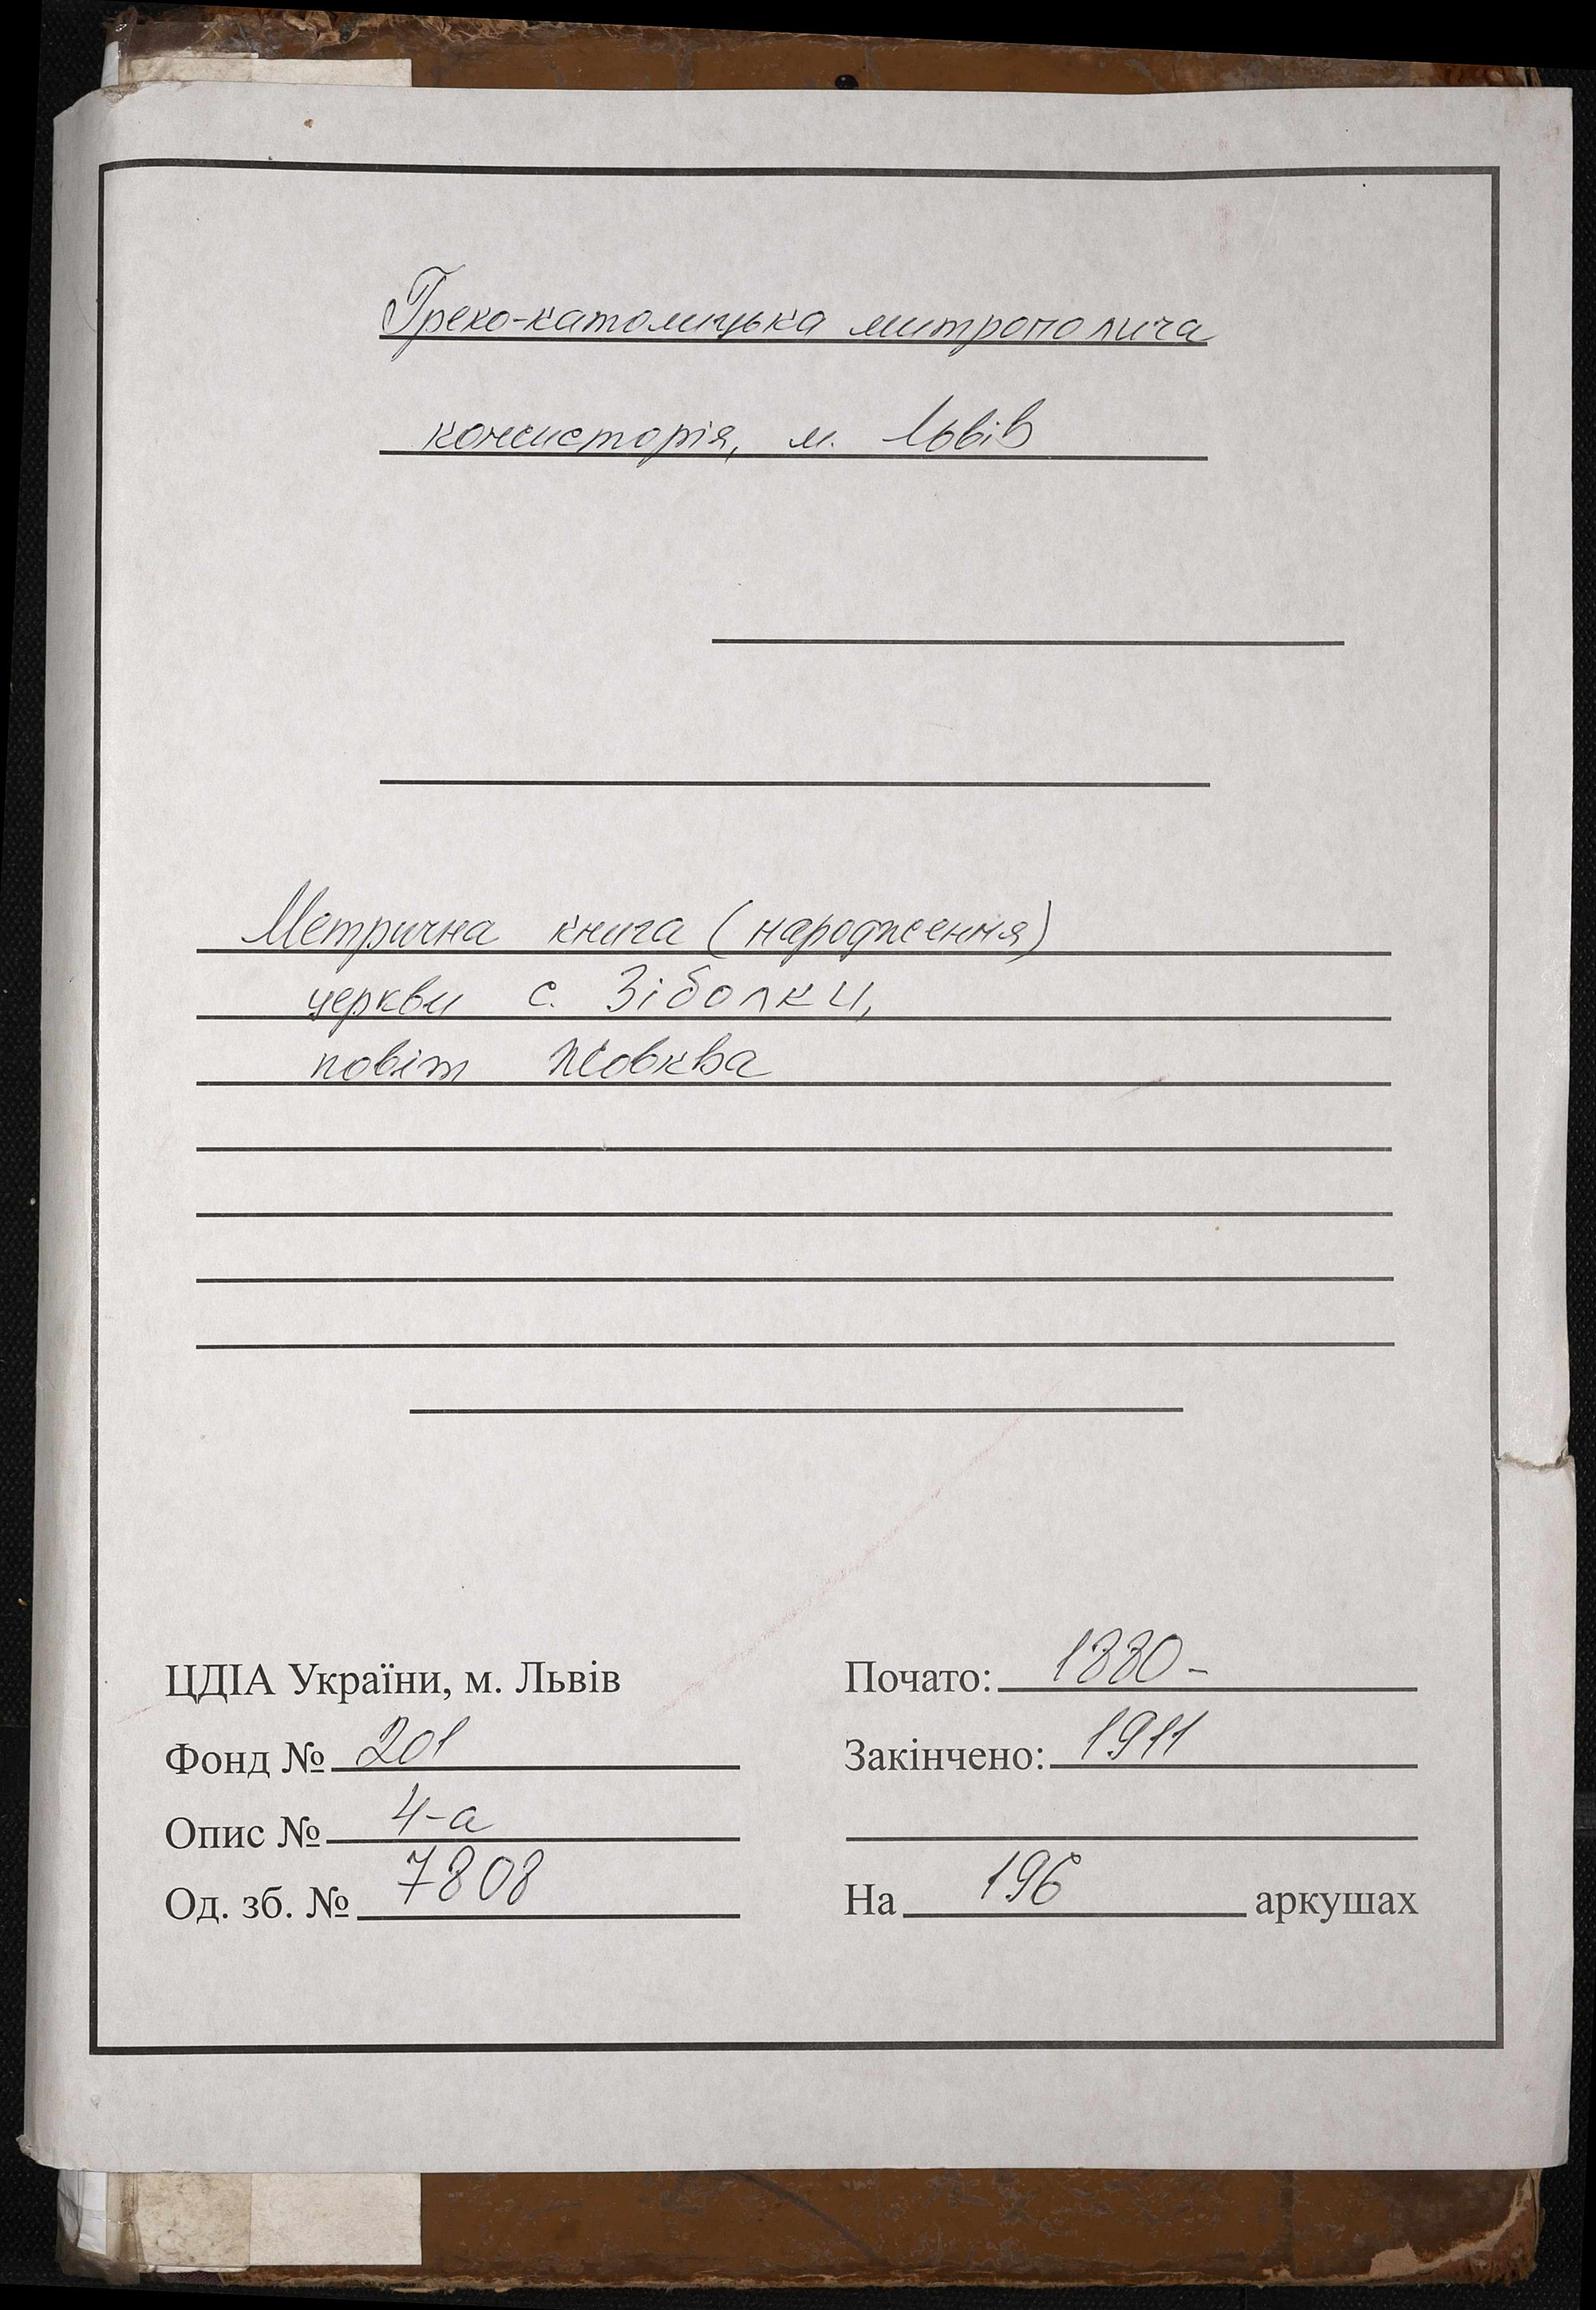 Греко-католицька митрополича
консисторія, м. Львів
Метрична книга (народження)
церкви с. Зіболки,
повіт Жовква
ЦДІА України, м. Львів
Фонд № 201
Опис № 4-а
Од. зб. № 7808
Почато: 1880-
Закінчено: 1911
На 196 аркушах